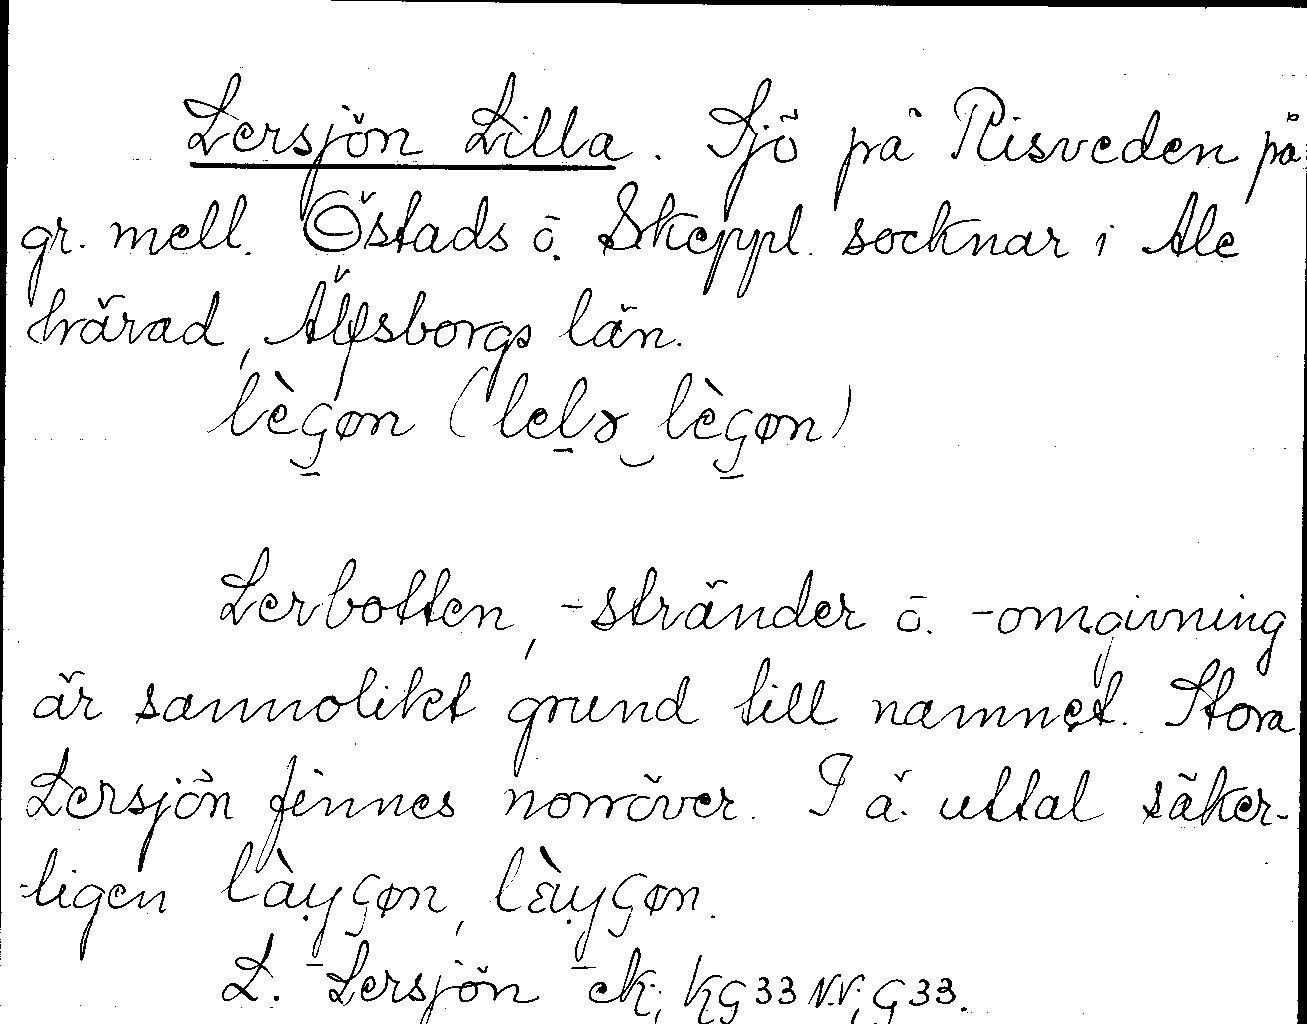 Lersjön Lilla. Sjö på Risveden på
gr. mell. Östads ō. Skeppl. socknar i Ale
härad, Älfsborgs län.
lèçøn (lelɤ lèçøn)
Lerbotten, -stränder ō. -omgivning
är sannolikt grund till namnet. Stora
Lersjön finnes norröver. I ä. uttal säker-
-ligen làyçøn, lɛ̀yçøn.
L. Lersjön ek, KG33 N.V., G33.